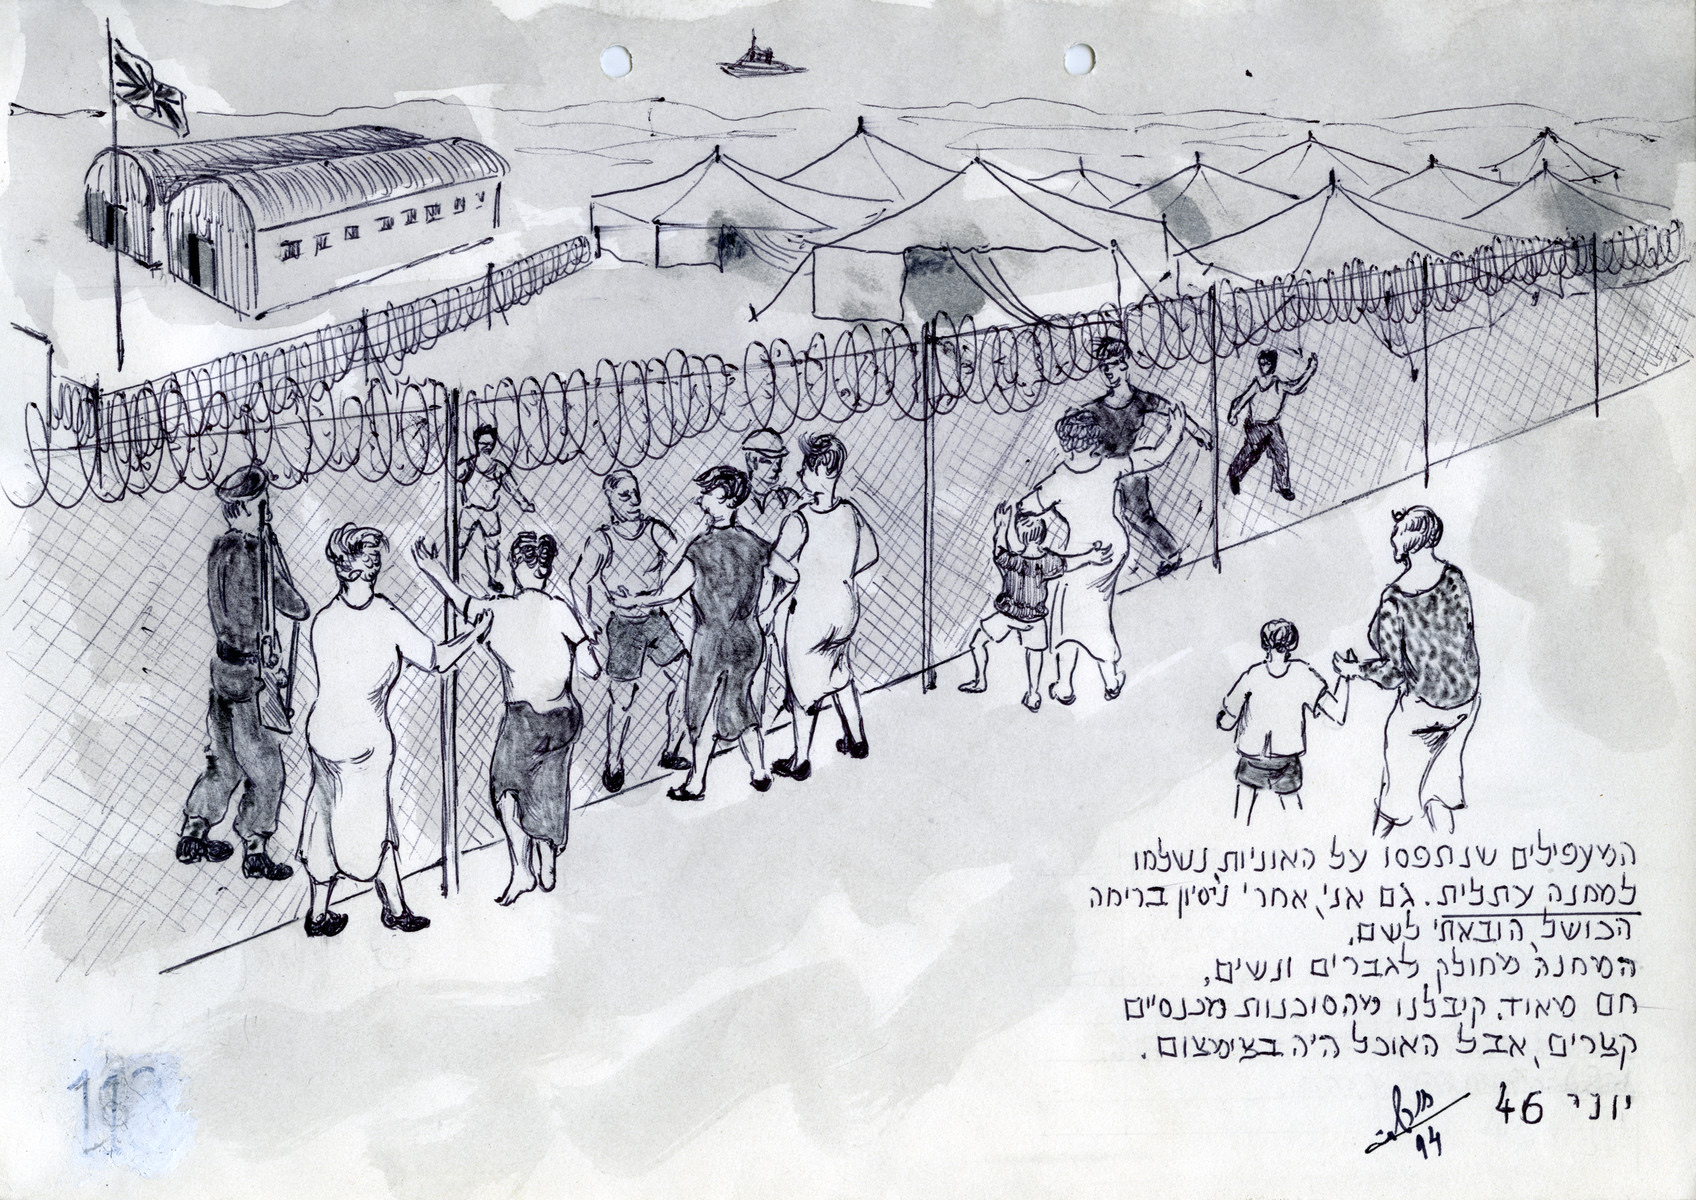 המעפילים שנתפסו על האוניות, נשלחו
למחנה עתלית. גם אני, אחרי ניסיון בריחה
הכושל, הובאתי לשם.
המחנה מחולק לגברים ונשים,
חם מאוד. קיבלנו מהסוכנות מכנסיים
קצרים, אבל האוכל היה בצימצום.
יוני 46
94